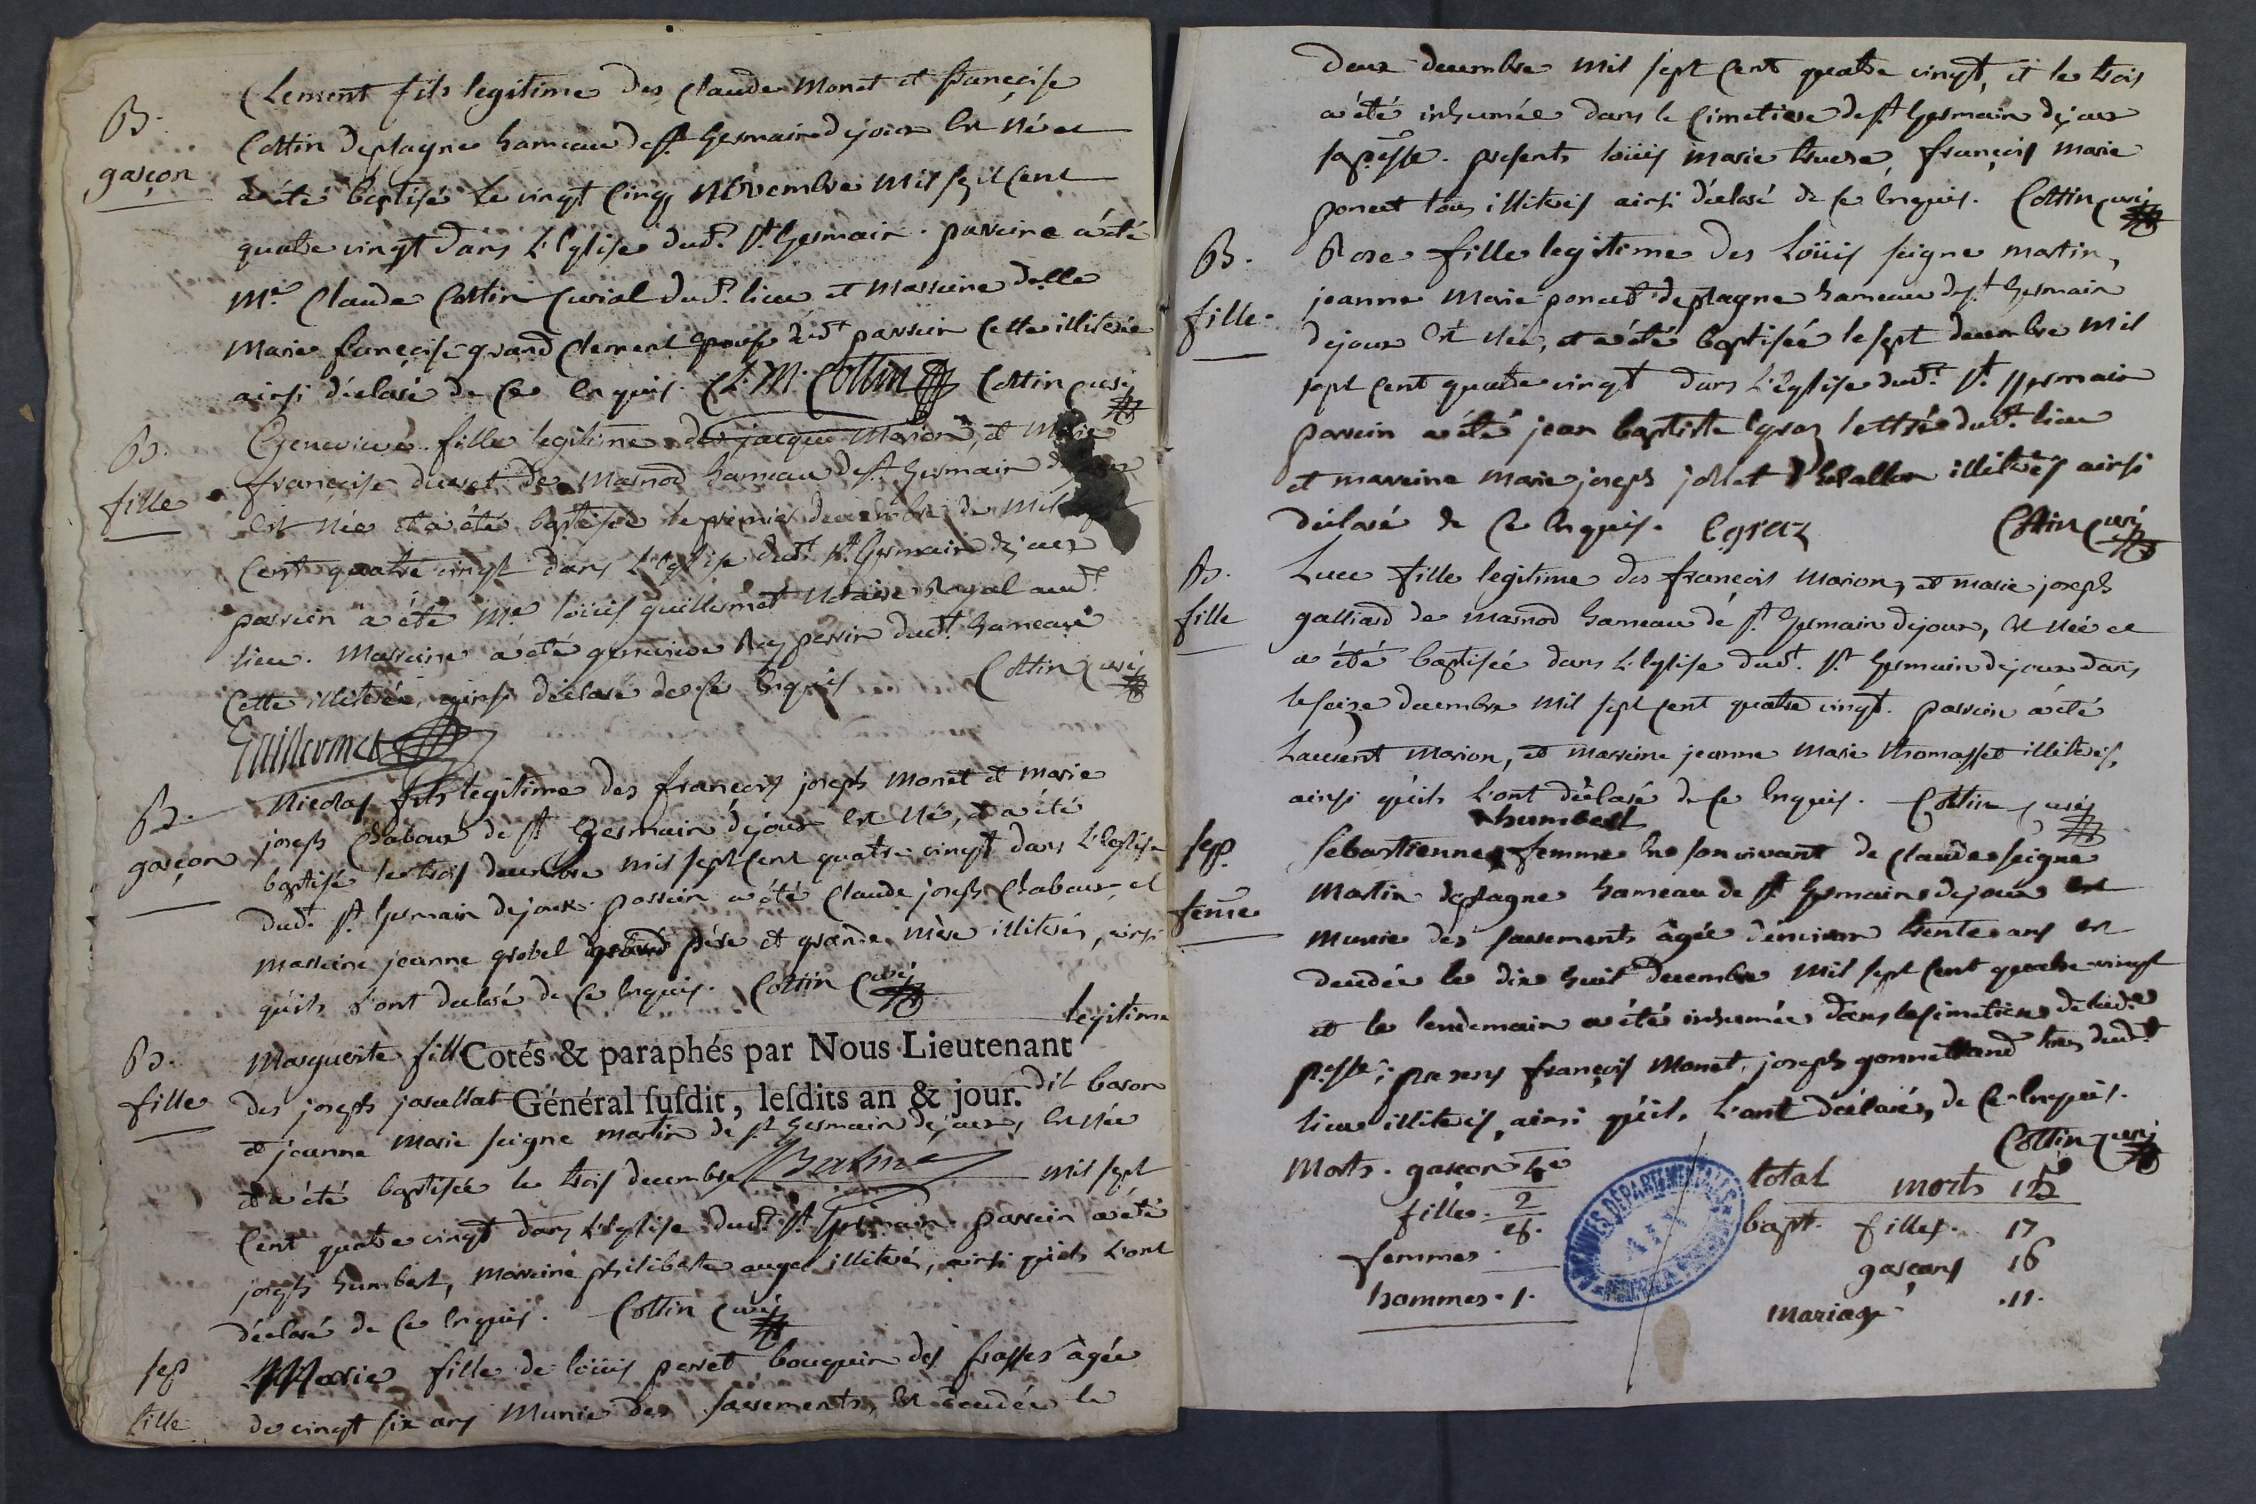 B.
garçon
Clement fils legitime des claude Monet et françoise
Cottin deplagne hameau de st. Germain dejoux Est né et
a été baptisé le vingt Cinq Novembre Mil sept Cent
quatre vingt dans L'Eglise dudt. st. Germain. parrein a été
Me. Claude Cottin Curial dudt. lieu et Marreine delle
Marie françoise grand Clement épouse dudt parrein Cette illiterée
ainsi déclaré de Ce Enquis. Cl. M. Cottin Cottin Curé
B.
fille
Genevieve fille legitime des jacque Marion, et Marie
françoise ducret de Marnod hameau de st. Germain
Est née et a été baptisée le premier decembre de Mil
Cent quatre vingt dans L'Eglise dudt. st. Germain dejoux
parrein a été Me. loüis guillermet Notaire Royal audt.
lieu. Marreine a été genevieve Rey perrin dudt. hameau
Cette illiterée, ainsi déclaré de Ce Enquis Cottin Curé
Guillermet
B.
garçon
Nicolas fils legitime des françois joseph Monet et Marie
joseph Chaboux de st. Germain dejoux Est Né, et a été
baptisé le trois decembre mil sept Cent quatre vingt dans L'Eglise
dudt. st. Germain dejoux. parrein a été Claude joseph Chaboux, et
marreine jeanne grobel grand père et grande mère illiterés, ainsi
qu'ils L'ont declaré de Ce Enquis. Cottin Curé
B.
fille
Marguerite fille legitime
Cotés & paraphés par Nous Lieutenant
des joseph javallat dit baron
Général fuſdit, leſdits an & jour.
et jeanne Marie seigne martin de st. Germain dejoux, Est Née
et a été baptisée le trois decembre mil sept
Cent quatre vingt dans L'Eglise dudt. st. Germain. parrein a été
joseph humbert, Marreine philiberte auger illiterés, ainsi qu'ils L'ont
déclaré de Ce Enquis. Cottin Curé
sep
fille
Marie fille de loüis perret bouquin des frasses âgée
de vingt six ans Munie des sacrements, Est decedée le
deux decembre Mil sept Cent quatre vingt, et le trois
a été inhumée dans le Cimetiere de st. Germain dejoux
sa psse. presents loüis marie , françois marie
poncet tous illiterés ainsi déclaré de Ce Enquis. Cottin Curé
B.
fille.
Rose fille legitime des Loüis seigne martin,
jeanne Marie poncet deplagne hameau de st. Germain
dejoux Est Née, et a été baptisée le sept decembre Mil
sept Cent quatre vingt dans L'Eglise dudt. st. Germain
parrein a été jean baptiste Egraz lettré dudt. lieu
et marreine marie joseph illiterés ainsi
declaré de Ce Enquis. Egraz Cottin Curé
B.
fille
Luce fille legitime des françois Marion, et marie joseph
galliard de marnod hameau de st. Germain dejoux, Est Née et
a été baptisée dans L'Eglise dudt. st. Germain dejoux dans
le seize decembre Mil sept Cent quatre vingt. parrein a été
Laurent Marion, et marreine jeanne Marie thomasset illiterés,
ainsi qu'ils L'ont declaré de Ce Enquis. Cottin Curé
sep.
feme
humbert
Sebastienne femme En son vivant de Claude seigne
Martin deplagne hameau de st. Germain dejoux Est
Munie des sacrements âgée d'environ trente ans Est
decedée le dix huit decembre Mil sept Cent quatre vingt
et le lendemain a été inhumée dans le Cimetiere de lad.e
psse. presens françois Monet, joseph gonnetland tous dudt.
lieu illiterés, ainsi qu'ils L'ont déclaré, de Ce Enquis.
Cottin Curé
Morts. garçon
filles. 2
femmes
hommes. 1.
total morts
bapt. filles. 17
garçons 16
Mariage. .11.
ARCHIVES DÉPARTEMENTALES